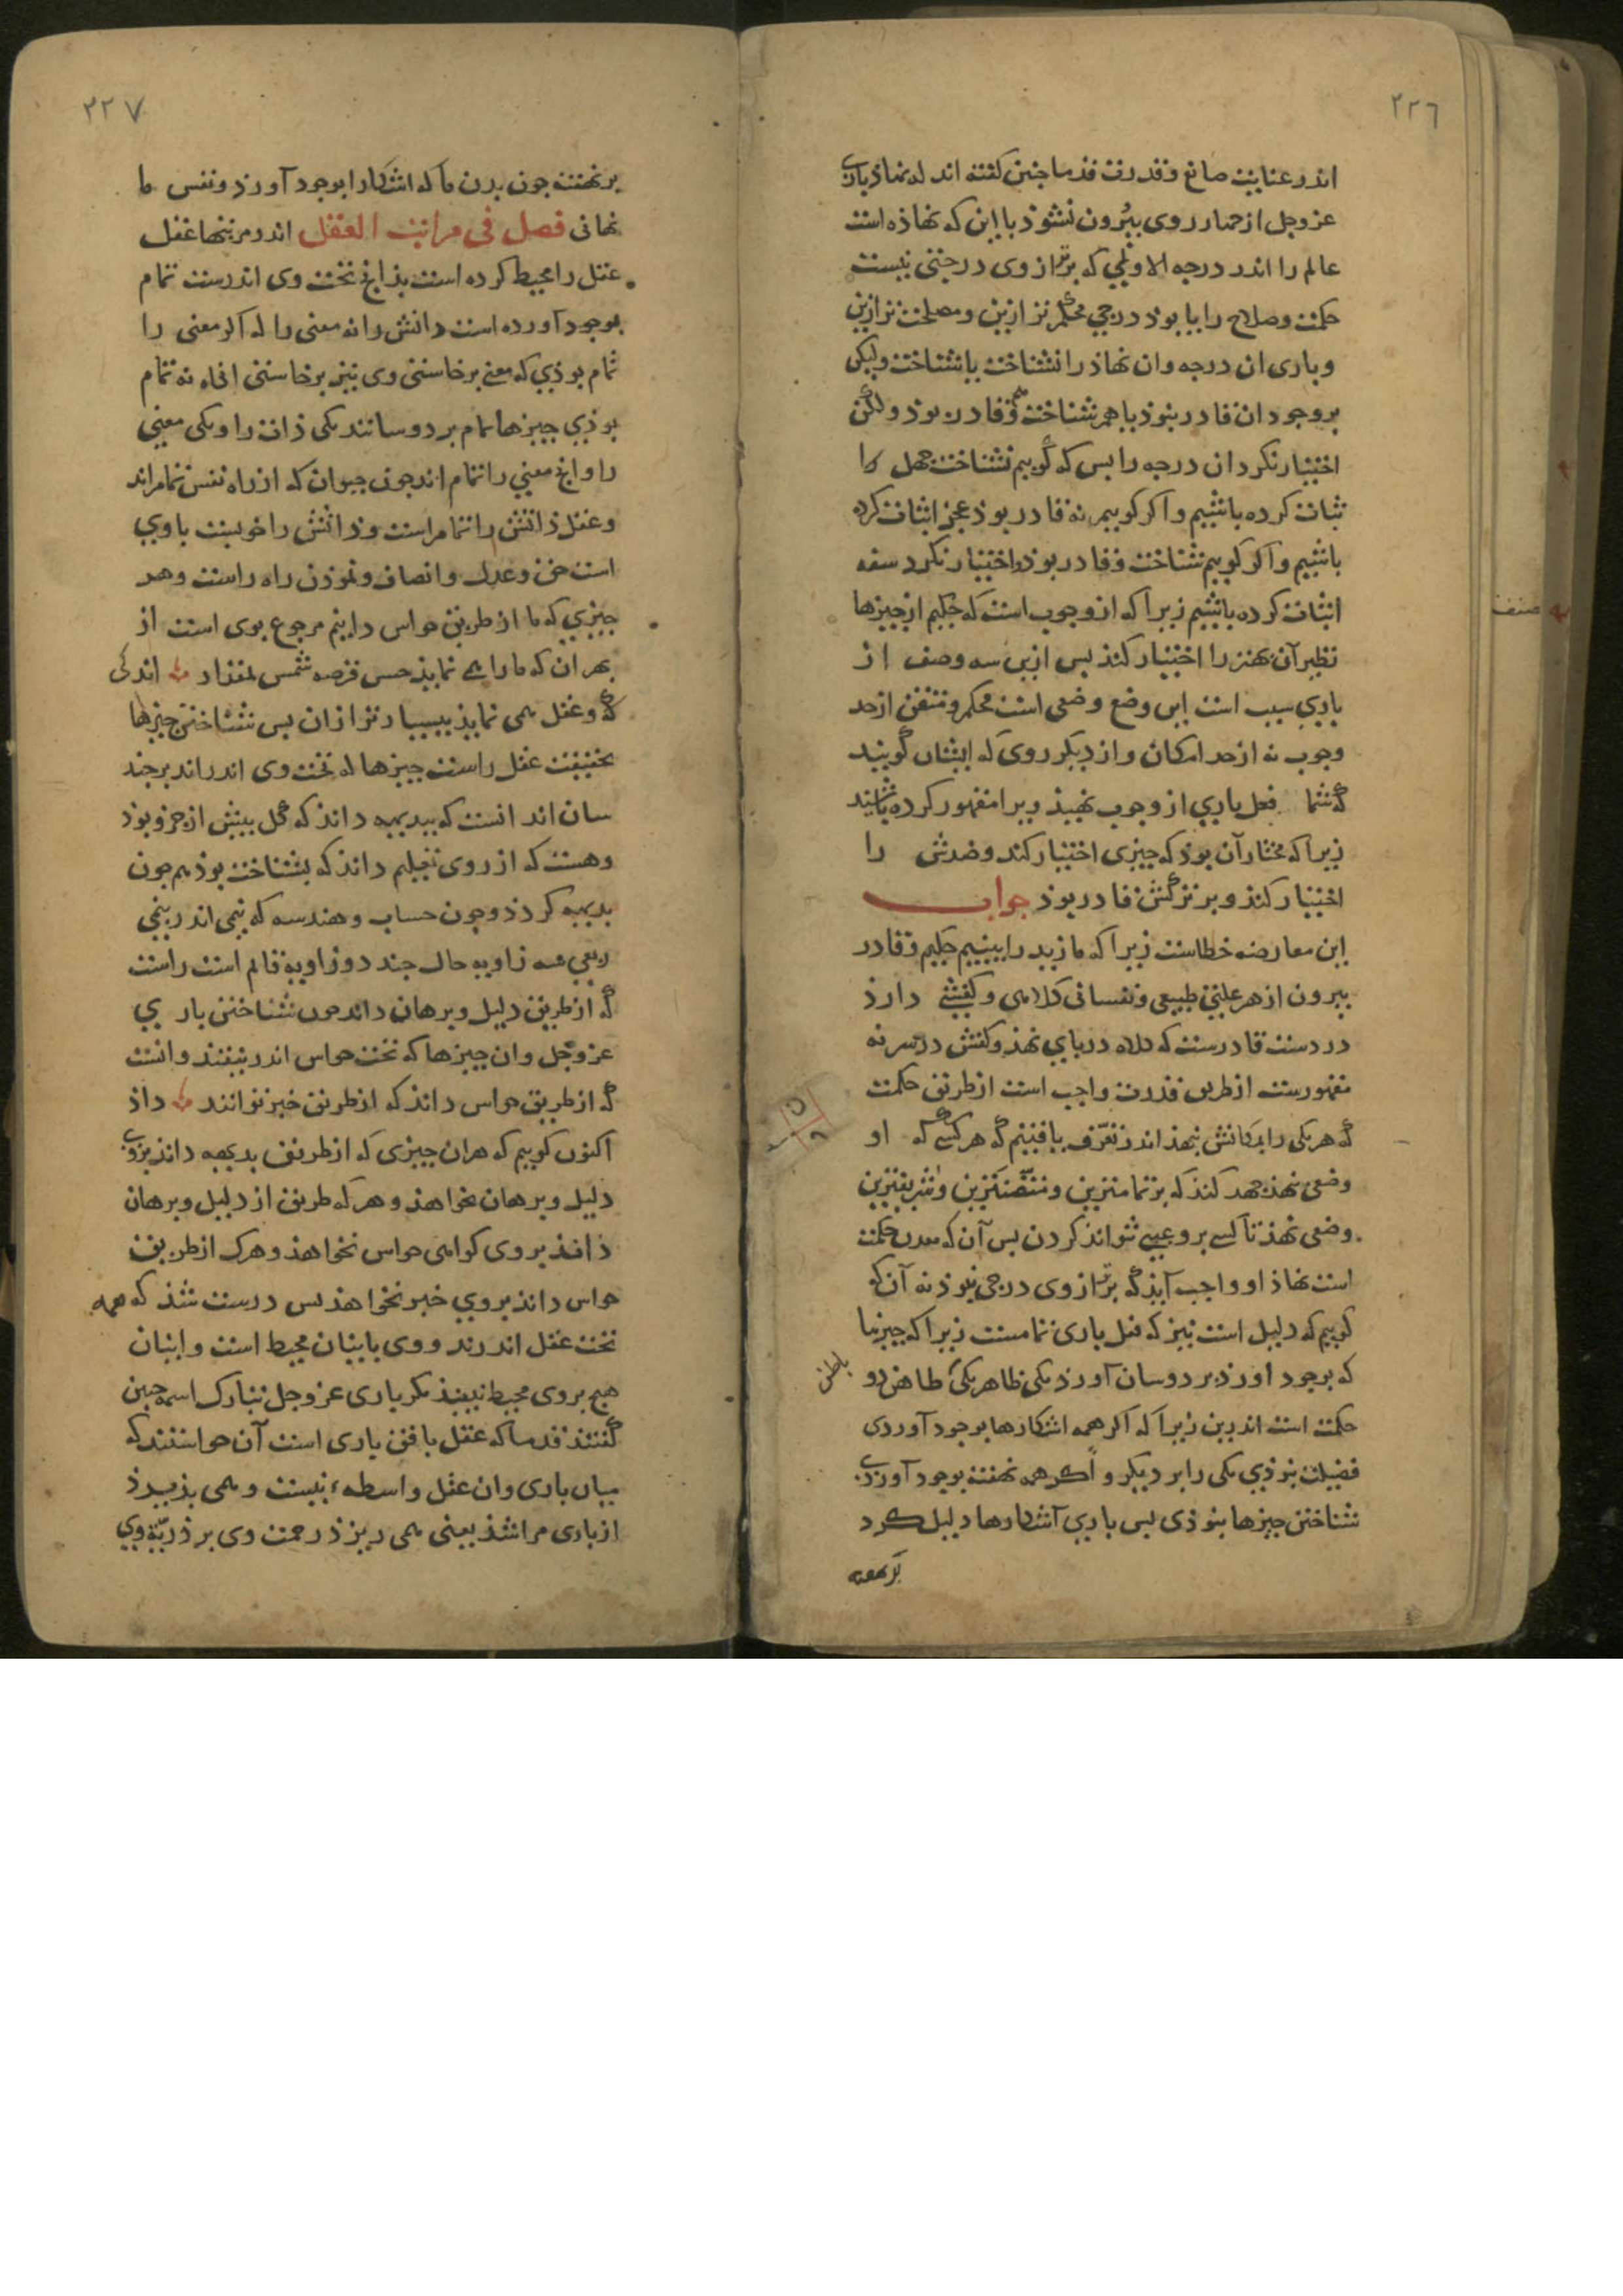 ٢٢٦
اندر عنایت صانع و قدرت قدما جنین کفته اند که نهاذ باری
عز و جل از جهار روی بیرون نشوذ با این که نهاذه است
عالم را اندر درجه الاولی که برتر از وی درجتی نیست
حکمت و صلاح را یا بوذ درجی محکم تر ازین و مصلحت تر ازین
و باری ان درجه و ان نهاذ را نشناخت یا بشناخت ولیکن
بر وجود ان قادر نبوذ یا هم بشناخت و هم قادر بوذ ولکن
اختیار نکرد ان درجه را بس که کوییم نشناخت جهل را
ثبات کرده باشیم و اکر کوییم نه قادر بوذ عجز اثبات کرده
باشیم و اکر کوییم شناخت و قادر بوذ و اختیار نکرد سفه
اثبات کرده باشیم زیرا که از وجوب است که حکیم از جیزها
نظیر آن بهتر را اختیار کند بس ازین سه وصف از
باری سبب است این وضع وضعی است محکم و متقن از حد
وجوب نه از حد امکان و از دیکر روی که ایشان کویند
که شما فعل باری از وجوب نهیذ ویرا مقهور کرده باشید
زیرا که مختار آن بوذ که جیزی اختیار کند و ضدش را
اختیار کند و بر ترکش قادر بوذ جواب
این معارضه خطاست زیرا که ما زید را بینیم حکیم و قادر
بیرون از هر علتی طبیعی و نفسانی کلاهی و کفشی دارذ
در دست قادرست که کلاه در بای نهذ و کفش در سر نه
مقهورست از طریق قدرت واجب است از طریق حکمت
که هر یکی را بمکانش بنهذ اندر تعرف یافتیم که هر کسی که او
وضعی بنهذ جهد کند که بر تمامترین و متقن ترین و شریفترین
وضعی نهذ تا کسی بر و عیبی نتواند کردن بس آن که معدن حکمت
است نهاذ او واجب آیذ که برتر از وی درجی نبوذ نه آن که
کوییم که دلیل است نیز که فعل باری تمامست زیرا که جیزها
که بوجود اورذ بر دو سان آورذ یکی ظاهر یکی باطن ظاهر دو
حکمت است اندرین زیرا که اکر همه اشکارها بوجود آوردی
فضیلت نبوذی یکی را بر دیکر و اکر همه نهفته بوجود آوردی
شناختن جیزها نبوذی بس باری آشکارها دلیل کرد
بر نهفته
صنف
٢٢٧
بر نهفته جون بدن ما که اشکارا بوجود آورذ و نفس ما
نهانی فصل فی مراتب العقل اندر مرتبتها عقل
عقل را محیط کرده است بذانج تحت وی اندرست تمام
بوجود آورده است دانش را نه معنی را که اکر معنی را
تمام بوذی که معنی برخاستی وی نیز برخاستی انکاه نه تمام
بوذی جیزها تمام بر دو سانند یکی ذات را و یکی معنی
را و انج معنی را تمام اند جون حیوان که از راه نفس تمام اند
و عقل ذاتش را تمام است و ذاتش را خوبیت با وی
است حق و عدل و انصاف و نموذن راه راست و هر
جیزی که ما از طریق حواس دانیم مرجوع بوی است از
بهر ان که ما را می نمایذ حس قرصه شمس بمقدار اندکی
که و عقل همی نمایذ بسیار تر از ان بس شناختن جیزها
بحقیقت عقل راست جیزها که تحت وی اندراند بر جند
سان اند انست که ببدیهه داند که کل بیش از جزو بوذ
و هست که از روی تعلیم داند که بشناخت بوذیم جون
بدیهه کردذ و جون حساب و هندسه که نیمی اندر نیمی
ربعی سه زاویه حال جند دو زاویه قائم است راست
که از طریق دلیل و برهان داند جون شناختن باری
عز و جل و ان جیزها که تحت حواس اندر نیفتند و انست
که از طریق حواس داند که از طریق خبر نتوانند داذ
اکنون کوییم که هران جیزی که از طریق بدیهه داند بروی
دلیل و برهان نخواهذ و هر که طریق از دلیل و برهان
داند بر وی کواهی حواس نخواهذ و هرک از طریق
حواس داند بر وی خبر نخواهذ بس درست شذ که همه
تحت عقل اندرند و وی بایشان محیط است و ایشان
هیج بر وی محیط نییند مکر باری عز و جل تبارک اسمه جنین
کفتند قدما که عقل یافتن باری است آن خواستند که
میان باری و ان عقل واسطه نیست و همی بذیرذ
از باری مرانشذ یعنی همی ریزذ رحمت وی بر ذریّة وی